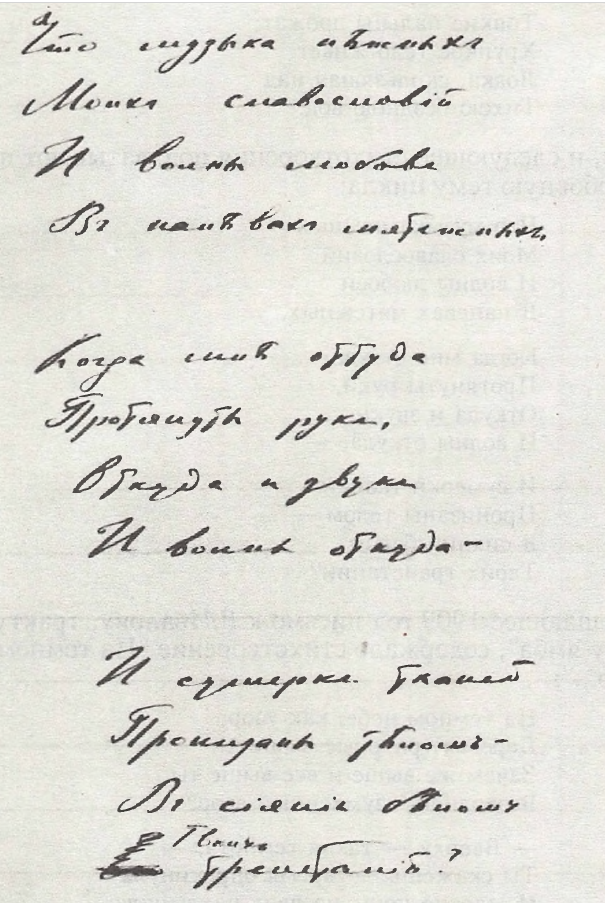 Что музыка нѣжныхъ
Моихъ славословій
И волны любови
Въ напѣвахъ мятежныхъ,
Когда мнѣ оттуда
Протянуты руки,
Откуда и звуки
И волны откуда—
И сумерки тканей
Пронизаны тѣломъ—
Въ сіяніи бѣломъ
Твоихъ
трепетаній?